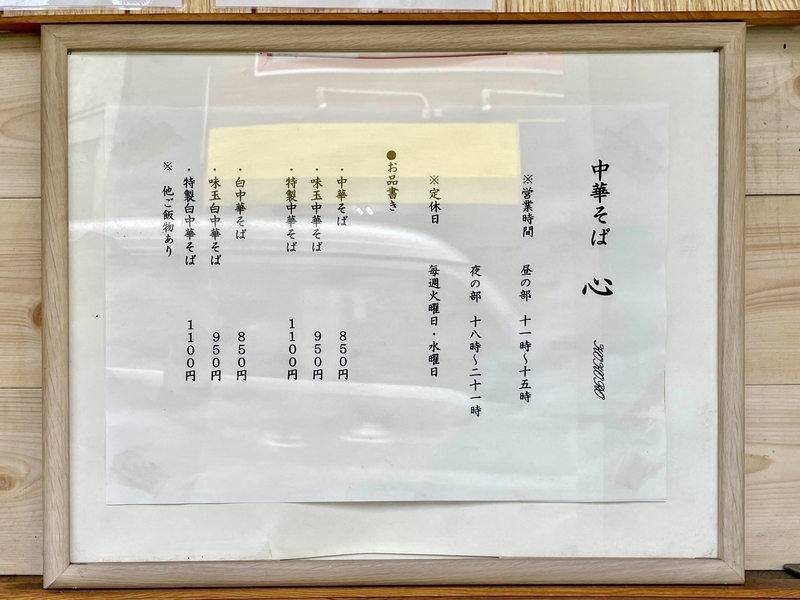 中華そば 心 KOKORO
※営業時間 昼の部 十一時〜十五時
夜の部 十八時〜二十一時
※定休日 毎週火曜日・水曜日
●お品書き
・中華そば 850円
・味玉中華そば 950円
・特製中華そば 1100円
・白中華そば 850円
・味玉白中華そば 950円
・特製白中華そば 1100円
※ 他ご飯物あり